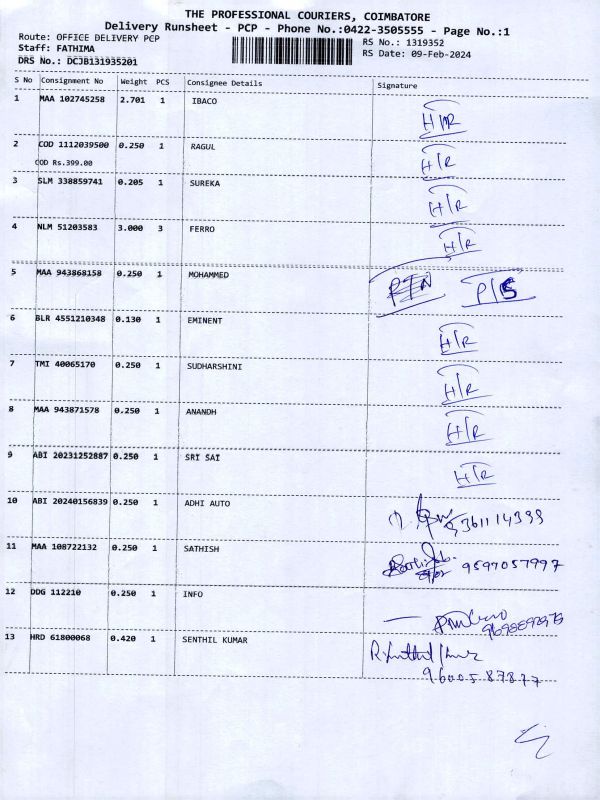 THE PROFESSIONAL COURIERS, COIMBATORE
Delivery Runsheet - PCP - Phone No.:0422-3505555 - Page No.:1
Route: OFFICE DELIVERY PCP
RS No.: 1319352
Staff: FATHIMA
RS Date: 09-Feb-2024
DRS No.: DCJB131935201
S No Consignment No Weight PCS Consignee Details Signature
1 MAA 102745258 2.701 1 IBACO H/R
2 COD 1112039500 0.250 1 RAGUL H/R
COD Rs.399.00
3 SLM 338859741 0.205 1 SUREKA H/R
4 NLM 51203583 3.000 3 FERRO H/R
5 MAA 943868158 0.250 1 MOHAMMED P/S
6 BLR 4551210348 0.130 1 EMINENT H/R
7 TMI 40065170 0.250 1 SUDHARSHINI H/R
8 MAA 943871578 0.250 1 ANANDH H/R
9 ABI 20231252887 0.250 1 SRI SAI H/R
10 ABI 20240156839 0.250 1 ADHI AUTO
11 MAA 108722132 0.250 1 SATHISH 9597057997
12 DDG 112210 0.250 1 INFO
13 HRD 61800068 0.420 1 SENTHIL KUMAR R.Senthil Kumar
9600587877